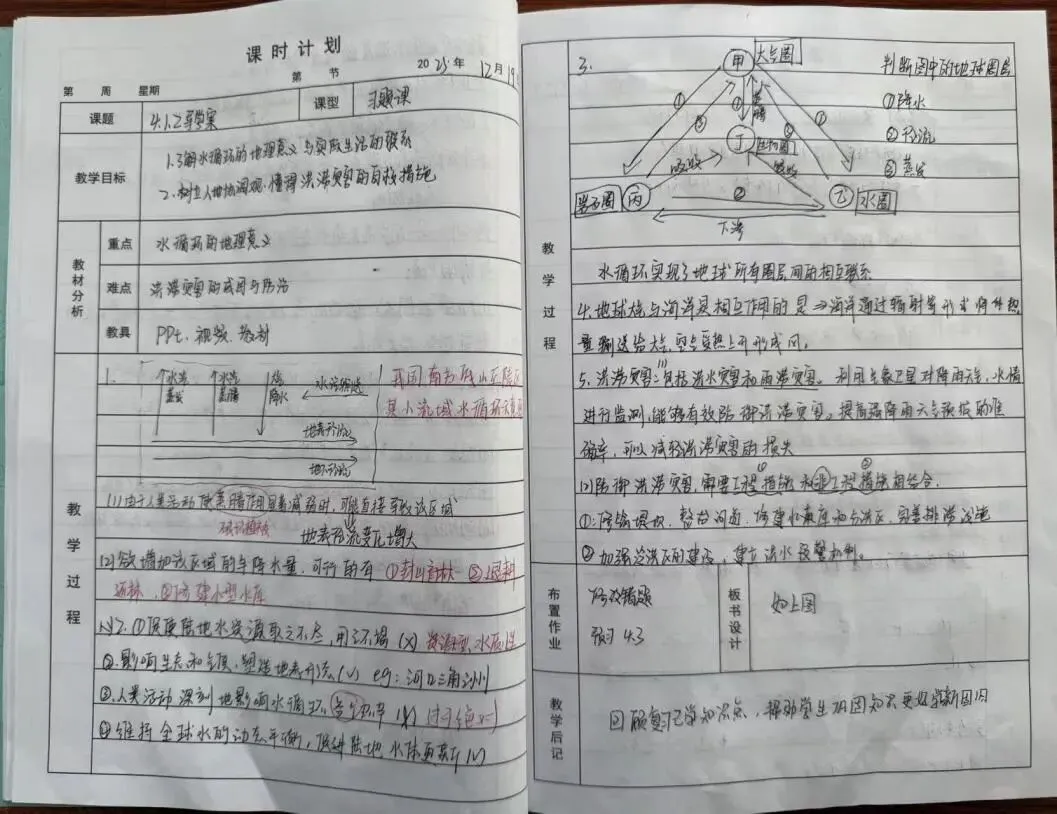 课时计划
第 周 星期 第 节 2025年12月19日
课题 4.1.2导学案 课型 习题课
教学目标
1.了解水循环的地理意义与实际生活的联系
2.树立人地协调观,懂得洪涝灾害的自救措施
教材分析
重点 水循环的地理意义
难点 洪涝灾害的成因与防治
教具 PPt、视频、教材
教学过程
1.
水汽蒸发 水汽蒸腾 降水 水汽输送
地表径流
地下径流
我国南方低山丘陵区
某小流域水循环示意图
(1)由于人类活动使蒸腾作用显著减弱时,可能直接导致该区域
破坏植被
地表径流变化增大
(2)欲增加该区域的年降水量,可行的有 ①封山育林 ②退耕
还林、③修建小型水库
①促使陆地水资源取之不尽,用之不竭 (×)
②影响生态和气候,塑造地表形态(√) eg:河口三角洲
③人类活动深刻地影响水循环各个环节 (×) 过于绝对
④维持全球水的动态平衡,促进陆地水体更新(√)
教学过程
3.
甲 大气圈 判断图中的地球圈层
①降水
②径流
③蒸发
① ③ 蒸腾 ③ ①
丁 生物圈
吸收 吸收
岩石圈 丙 ② 乙 水圈
下渗
水循环实现了地球所有圈层间的相互联系
5.洪涝灾害:(1)包括洪水灾害和雨涝灾害。利用气象卫星对降雨天气、水情
进行监测,能够有效防御洪涝灾害。提高强降雨天气预报的准
确率,可以减轻洪涝灾害的损失
(2)防御洪涝灾害,需要工程措施和非工程措施相结合.
①:修筑堤坝、整治河道、修建水库和分洪区、完善排涝设施
②加强泛洪区的建设,建立洪水预警机制。
布置作业
修改错题
预习 4.3
板书设计
如上图
教学后记
回顾复习已学知识点,帮助学生巩固知识更好学新